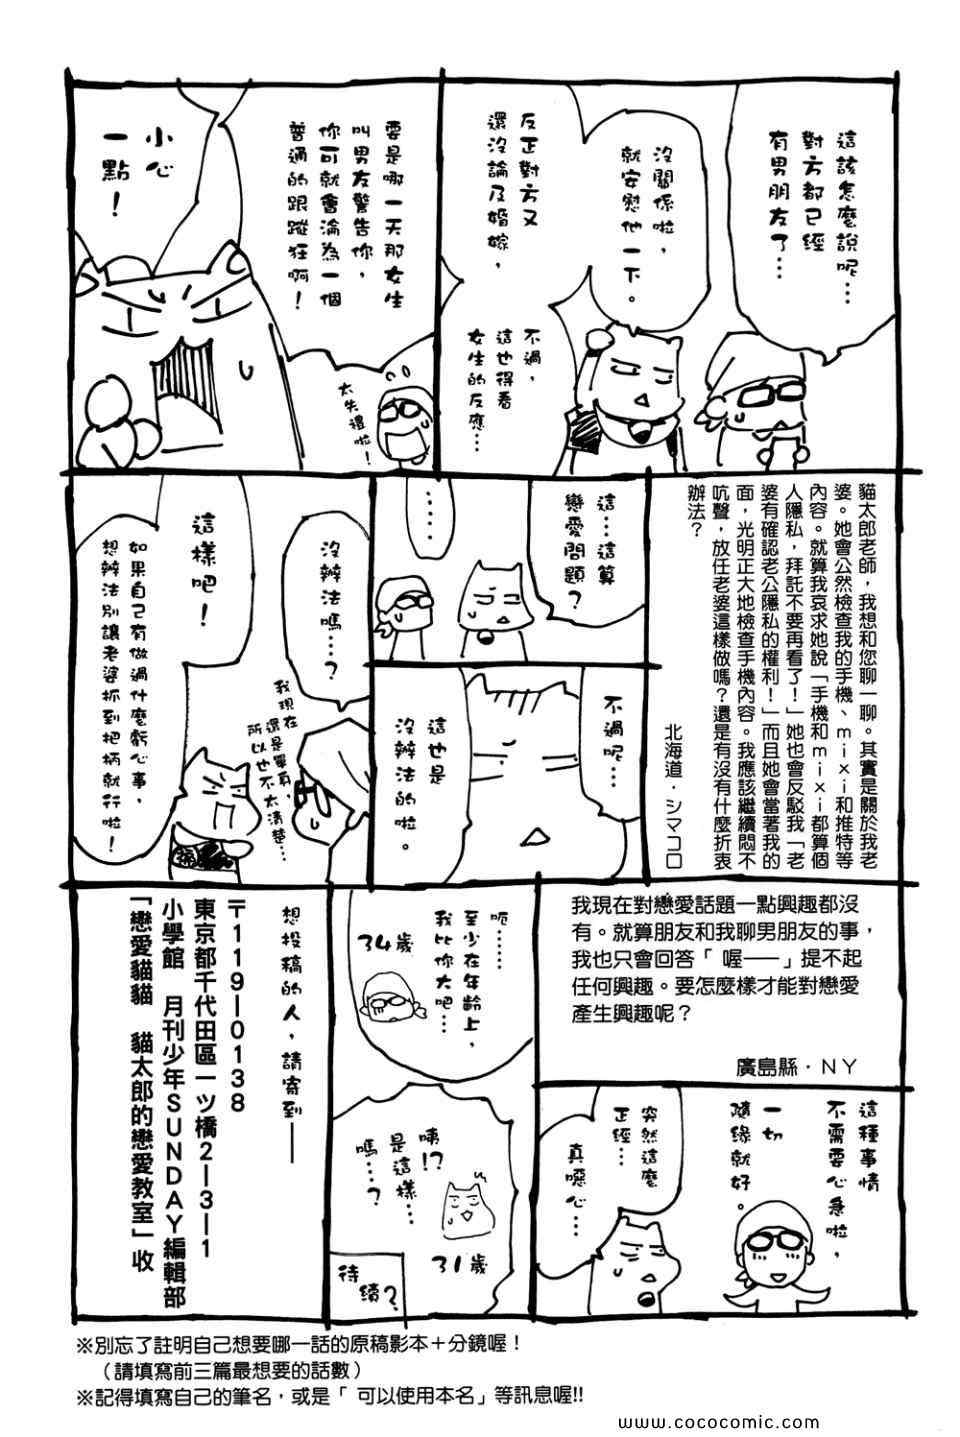 這該怎麼說呢…
對方都已經
有男朋友了…
沒關係啦，
就安慰他一下。
反正對方又
還沒論及婚嫁，
不過，
這也得看
女生的反應…
要是哪一天那女生
叫男友警告你，
你可就會淪為一個
普通的跟蹤狂啊！
太失禮啦！
小心
一點！
貓太郎老師，我想和您聊一聊。其實是關於我老
婆。她會公然檢查我的手機、ｍｉｘｉ和推特等
內容。就算我哀求她說「手機和ｍｉｘｉ都算個
人隱私，拜託不要再看了！」她也會反駁我「老
婆有確認老公隱私的權利！」而且她會當著我的
面，光明正大地檢查手機內容。我應該繼續悶不
吭聲，放任老婆這樣做嗎？還是有沒有什麼折衷
辦法？
北海道．シマコロ
這…這算
戀愛問題？
……
不過呢…
這也是
沒辦法的啦。
沒辦法嗎…？
我現在
還是單身，
所以也不太清楚…
這樣吧！
如果自己有做過什麼虧心事，
想辦法別讓老婆抓到把柄就行啦！
我現在對戀愛話題一點興趣都沒
有。就算朋友和我聊男朋友的事，
我也只會回答「 喔──」提不起
任何興趣。要怎麼樣才能對戀愛
產生興趣呢？
廣島縣．ＮＹ
這種事情
不需要心急啦，
一切
隨緣就好。
突然這麼
正經…
真噁心…
呃……
至少在年齡上，
我比你大吧…
34歲
咦!?
是這樣…
嗎…？
31歲
待續？
想投稿的人，請寄到──
〒119-0138
東京都千代田區一ツ橋2-3-1
小學館　月刊少年SUNDAY編輯部
「戀愛貓貓　貓太郎的戀愛教室」收
※別忘了註明自己想要哪一話的原稿影本＋分鏡喔！
（請填寫前三篇最想要的話數）
※記得填寫自己的筆名，或是「 可以使用本名」等訊息喔!!
www.cococomic.com